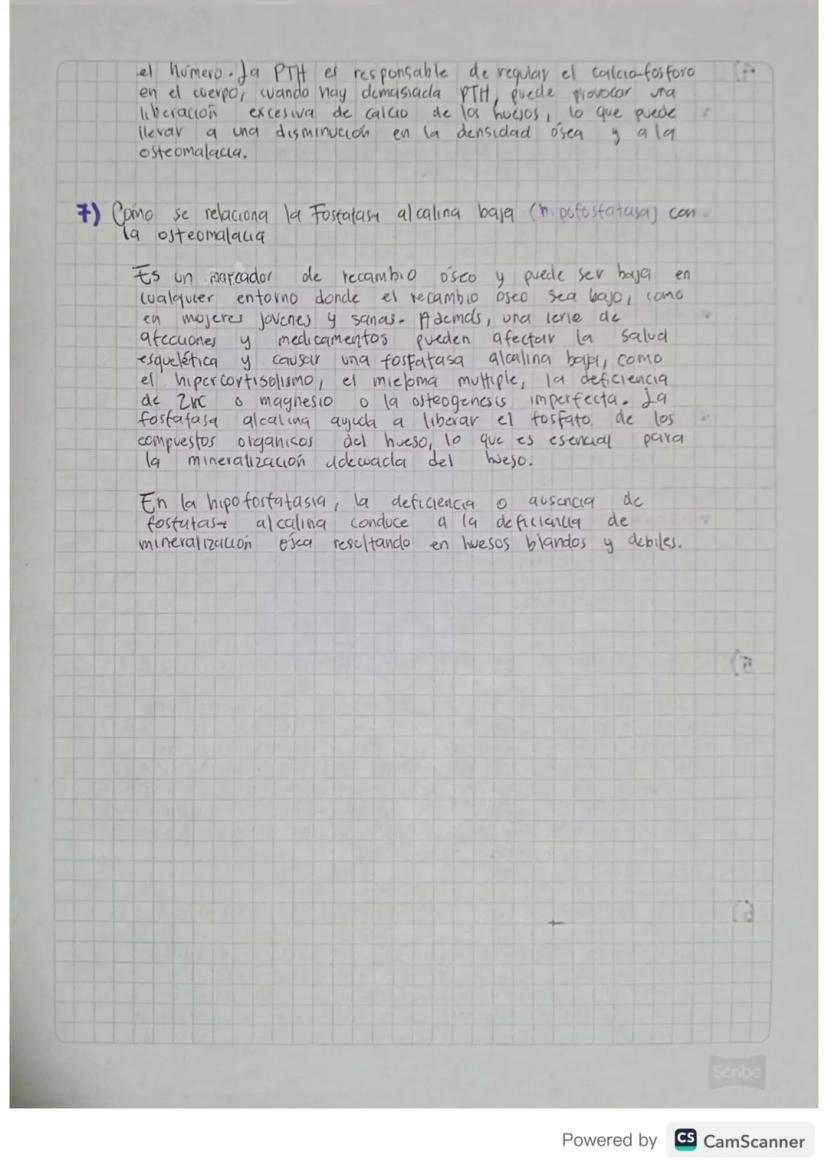 el húmero. La PTH es responsable de regular el calcio-fosforo
en el cuerpo, cuando hay demasiada PTH, puede provocar una
liberación excesiva de calcio de los huesos, lo que puede
llevar a una disminución en la densidad ósea y a la
osteomalacia.
7) Cómo se relaciona la Fosfatasa alcalina baja (hipofostatasa) con
la osteomalacia
Es un marcador de recambio óseo y puede ser baja en
cualquier entorno donde el recambio oseo sea bajo, como
en mujeres jovenes y sanas. Además, una serie de
afecciones y medicamentos pueden afectar la salud
esquelética y causar una fosfatasa alcalina baja, como
el hipercortisolismo, el mieloma multiple, la deficiencia
de Zinc o magnesio o la osteogenesis imperfecta. La
fosfatasa alcalina ayuda a liberar el fosfato de los
compuestos organicos del hueso, lo que es esencial para
la mineralización adecuada del hueso.
En la hipofosfatasia, la deficiencia o ausencia de
fosfatasa alcalina conduce a la deficiencia de
mineralización ósea resultando en huesos blandos y debiles.
Scribe
Powered by CS CamScanner